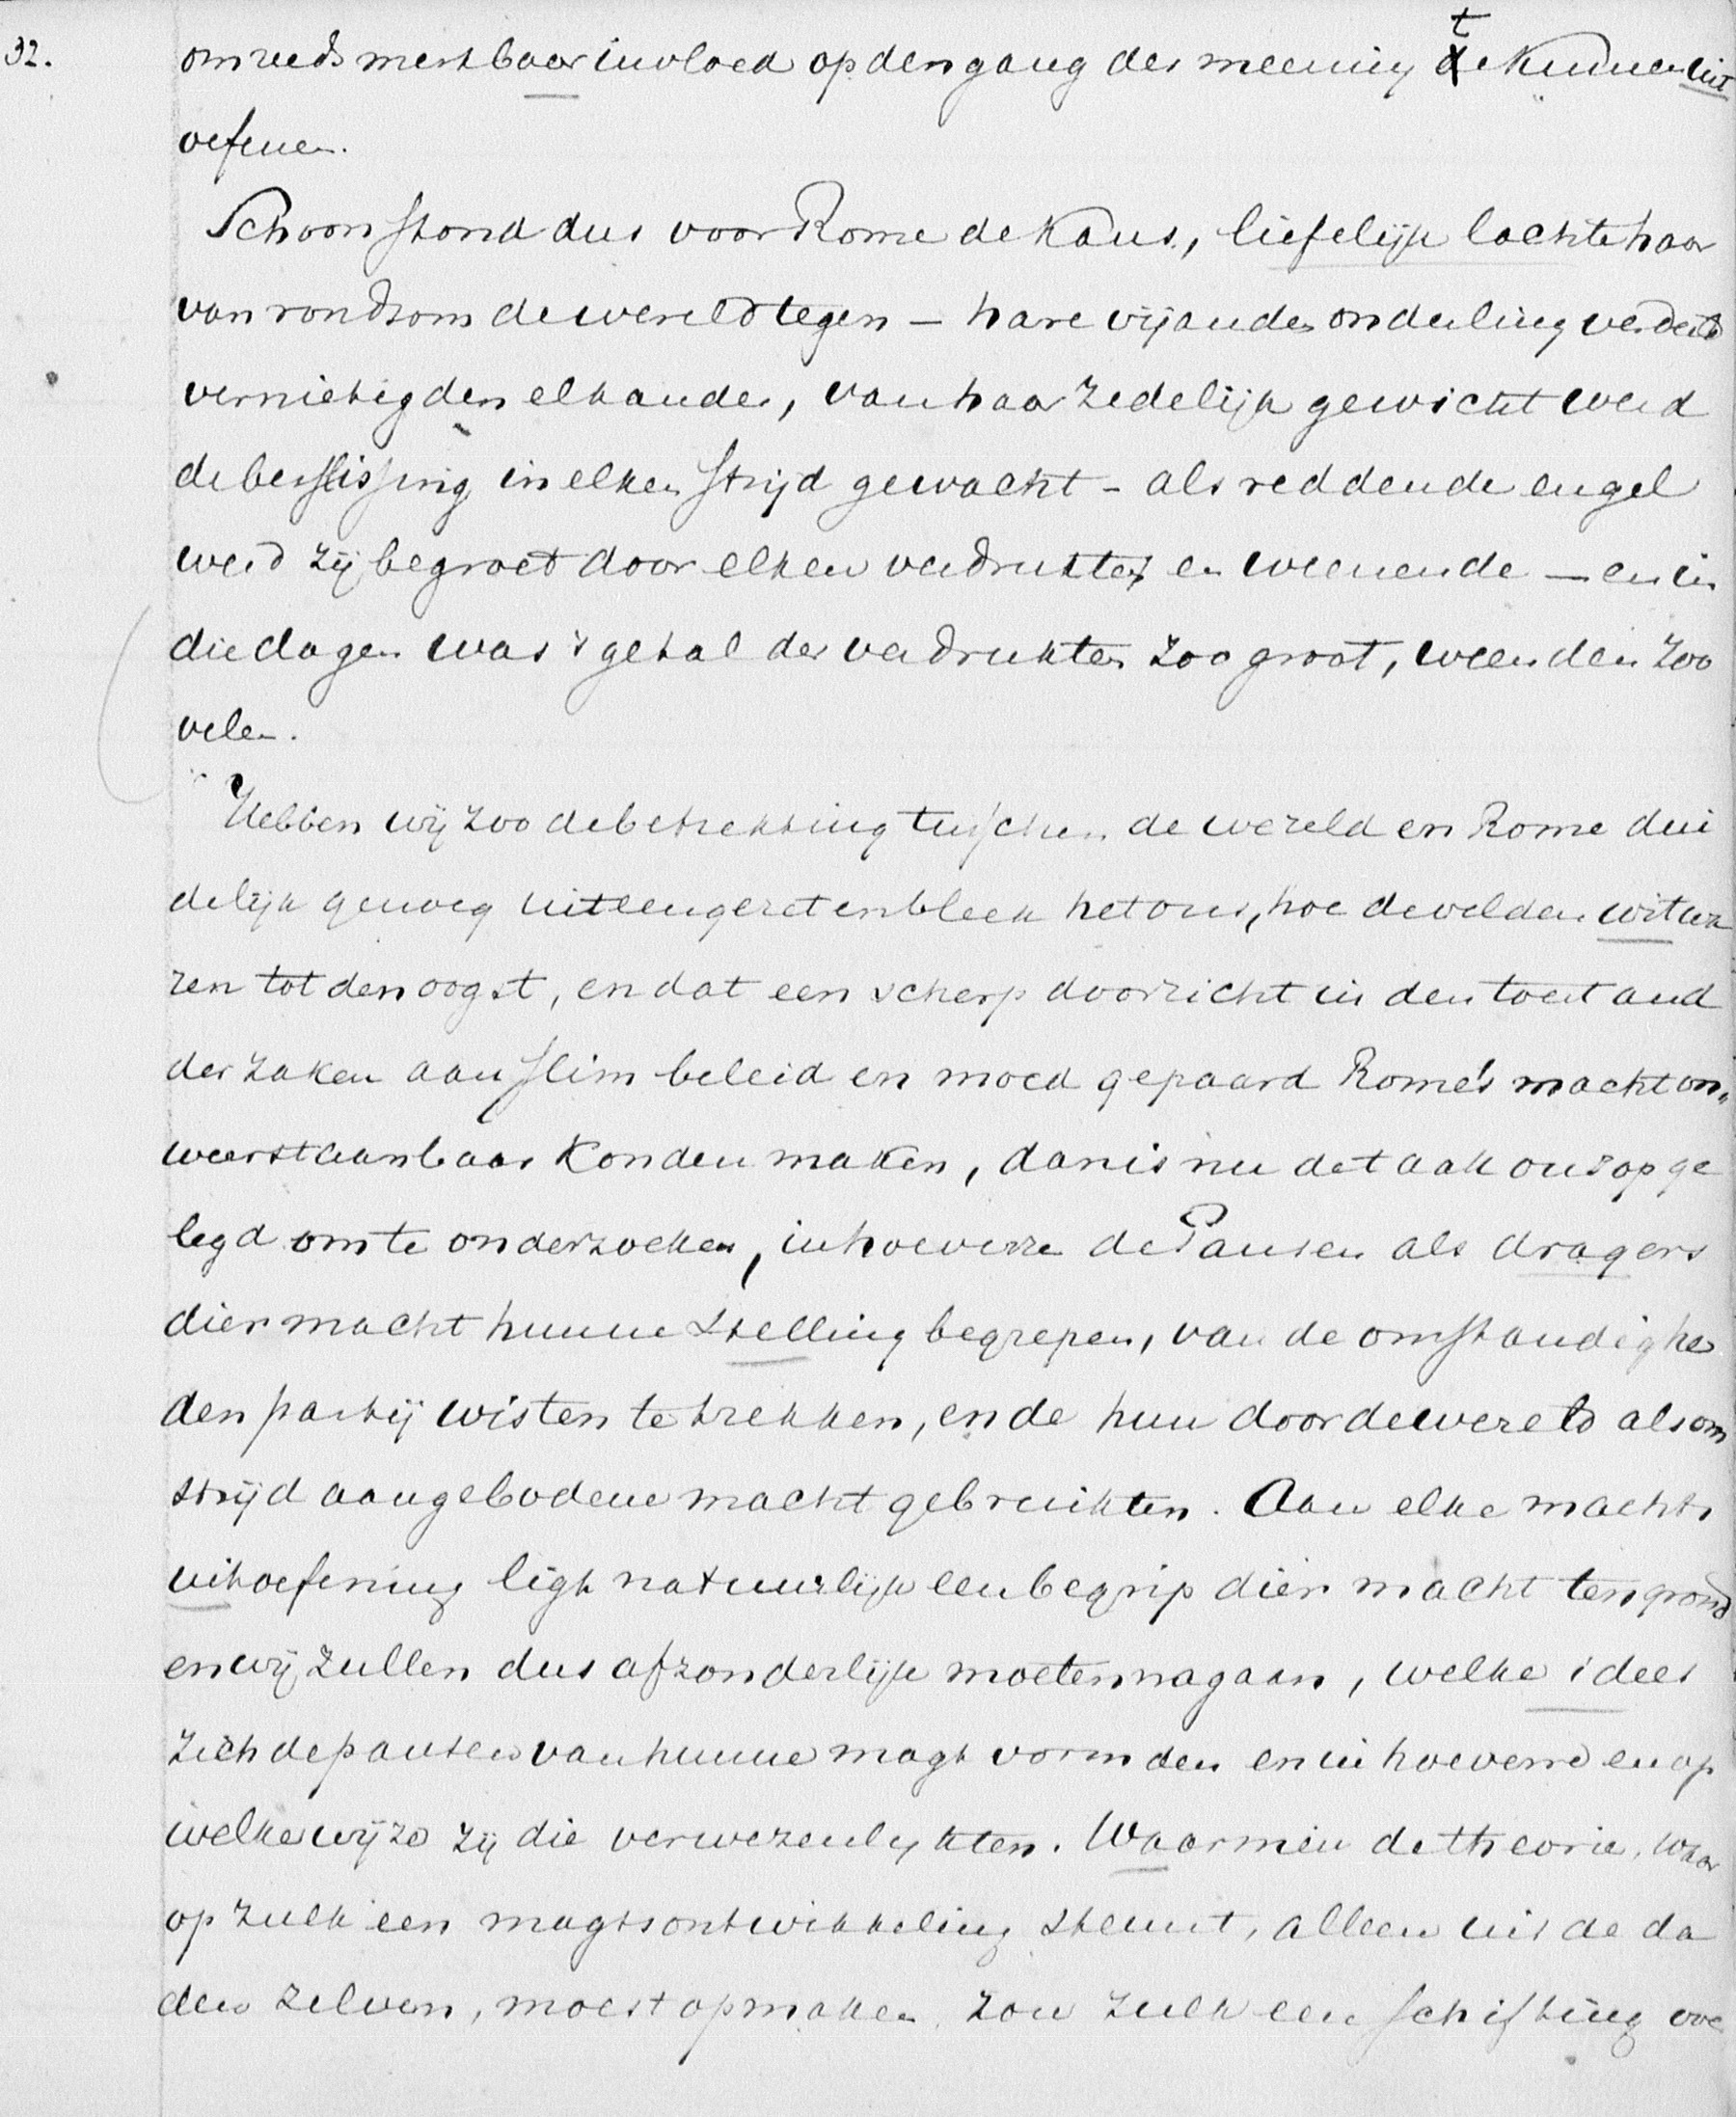 32.
om reeds merkbaar invloed op den gang der meening te kunnen uit
oefenen.
Schoon stond dus voor Rome de kans, liefelijk lachte haar
van rondsom de wereld tegen – hare vijanden onderling verdeeld
vernietigden elkander, van haar zedelijk gewicht werd
de beslissing in elken strijd gewacht – als reddende engel
werd zij begroet door elken verdrukten en weenende – en in
die dagen was 't getal der verdrukten zoo groot, weenden zoo
velen.
Hebben wij zoo de betrekking tusschen de wereld en Rome dui
delijk genoeg uiteengezet en bleek het ons, hoe de velden wit wa
ren tot den oogst, en dat een scherp doorzicht in den toestand
der zaken aan slim beleid en moed gepaard Rome's macht on„
weerstaanbaar konden maken, dan is nu de taak ons opge
legd om te onderzoeken, in hoeverre de Pausen als dragers
dier macht hunne stelling begrepen, van de omstandighe
den partij wisten te trekken, en de hun door de wereld als om
strijd aangebodene macht gebruikten. Aan elke machts
uitoefening ligt natuurlijk een begrip dier macht ten grond
en wij zullen dus afzonderlijk moeten nagaan, welke idees
zich de pausen van hunne magt vormden en in hoeverre en op
welke wijze zij die verwezenlykten. Waar men de theorie, waar
op zulk een magtsontwikkeling steunt, alleen uit de da
den zelven, moest opmaken zou zulk een schifting ove